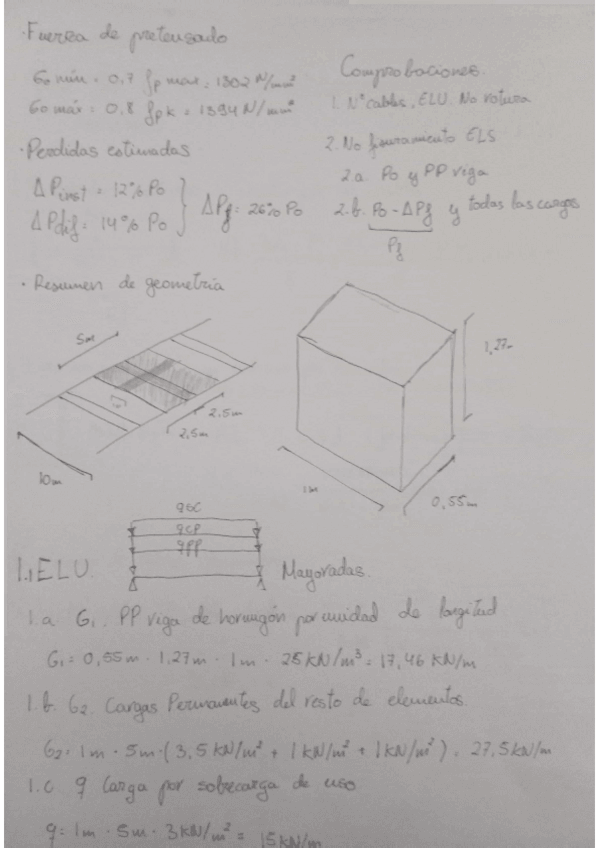 · Fuerza de pretensado
σo mín = 0,7 fp max = 1302 N/mm²
σo máx = 0,8 fpk = 1394 N/mm²
· Perdidas estimadas
ΔPinst = 12% Po
ΔPdif = 14% Po
ΔPf = 26% Po
Comprobaciones.
1. Nº cables. ELU. No rotura
2. No fisuramiento ELS
2a Po y PP viga
2.b. Po - ΔPf y todas las cargas
Pf
· Resumen de geometría
5m
2,5m
2,5m
10m
1,27m
1m
0,55m
qSC
qCP
qPP
1., ELU.
Mayoradas.
1.a G1. PP viga de hormigón por unidad de longitud
G1 = 0,55m · 1,27m · 1m · 25 kN/m³ = 17,46 kN/m
1.b. G2. Cargas Permanentes del resto de elementos.
G2 = 1m · 5m · (3,5 kN/m² + 1 kN/m² + 1 kN/m²) = 27,5 kN/m
1.c q Carga por sobrecarga de uso
q = 1m · 5m · 3 kN/m² = 15 kN/m